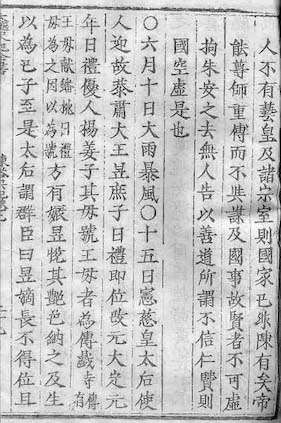 人不有藝皇及諸宗室則國家已非陳有矣帝
能尊師重傅而不共謀及國事故賢者不可虛
拘朱安之去無人告以善道所謂不信仁賢則
國空虛是也
○六月十日大雨暴風○十五日憲慈皇太后使
人迎故恭肅大王昱庶子日禮即位改元大定元
年日禮優人楊姜子其母號王母者為傳戲傳有
王母獻蟠桃日禮母為之因以為號方有娠昱悅其艷色納之及生
以為己子至是太后謂群臣曰昱嫡長不得位且